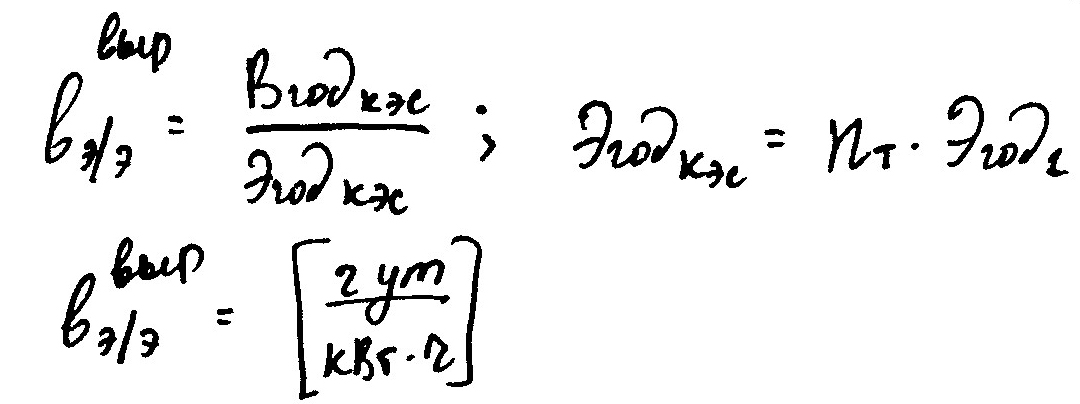 b э/э выр = Bгод кэс / Эгод кэс ; Эгод кэс = nт · Эгод г
b э/э выр = [г ут / кВт·ч]